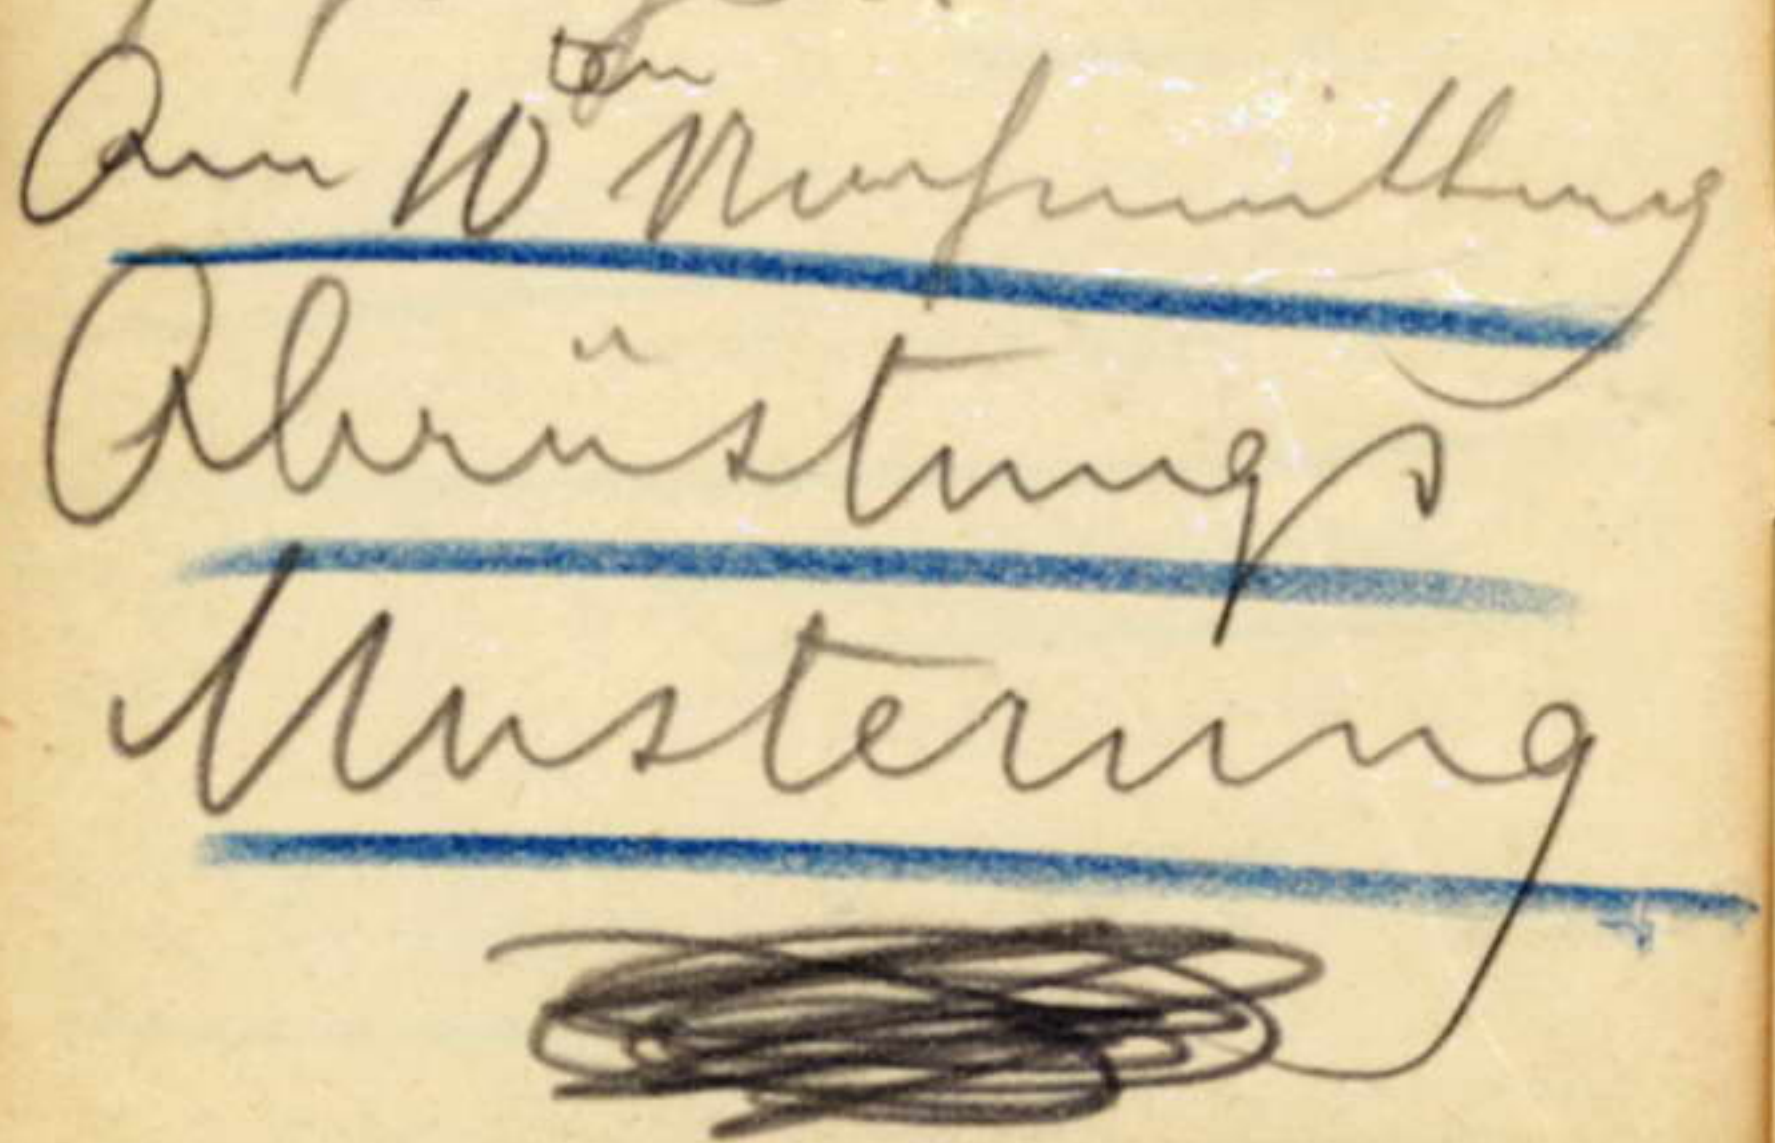 Am 10ten Nachmittag
Abrüstungs
Musterung